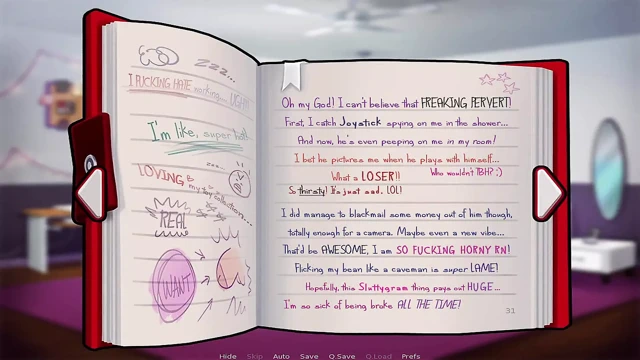 zzz...
I FUCKING HATE working... UGH!
I'm like, super hot!
zzz...
LOVING my toy collection...
REAL
WANT
Oh my God! I can't believe that FREAKING PERVERT!
First, I catch Joystick spying on me in the shower...
And now, he's even peeping on me in my room!
I bet he pictures me when he plays with himself...
What a LOSER!! Who wouldn't TBH? ;)
So thirsty! It's just sad. LOL!
I did manage to blackmail some money out of him though,
totally enough for a camera. Maybe even a new vibe...
That'd be AWESOME, I am SO FUCKING HORNY RN!
Flicking my bean like a caveman is super LAME!
Hopefully, this Sluttygram thing pays out HUGE...
I'm so sick of being broke ALL THE TIME!
31
Hide Skip Auto Save Q.Save Q.Load Prefs